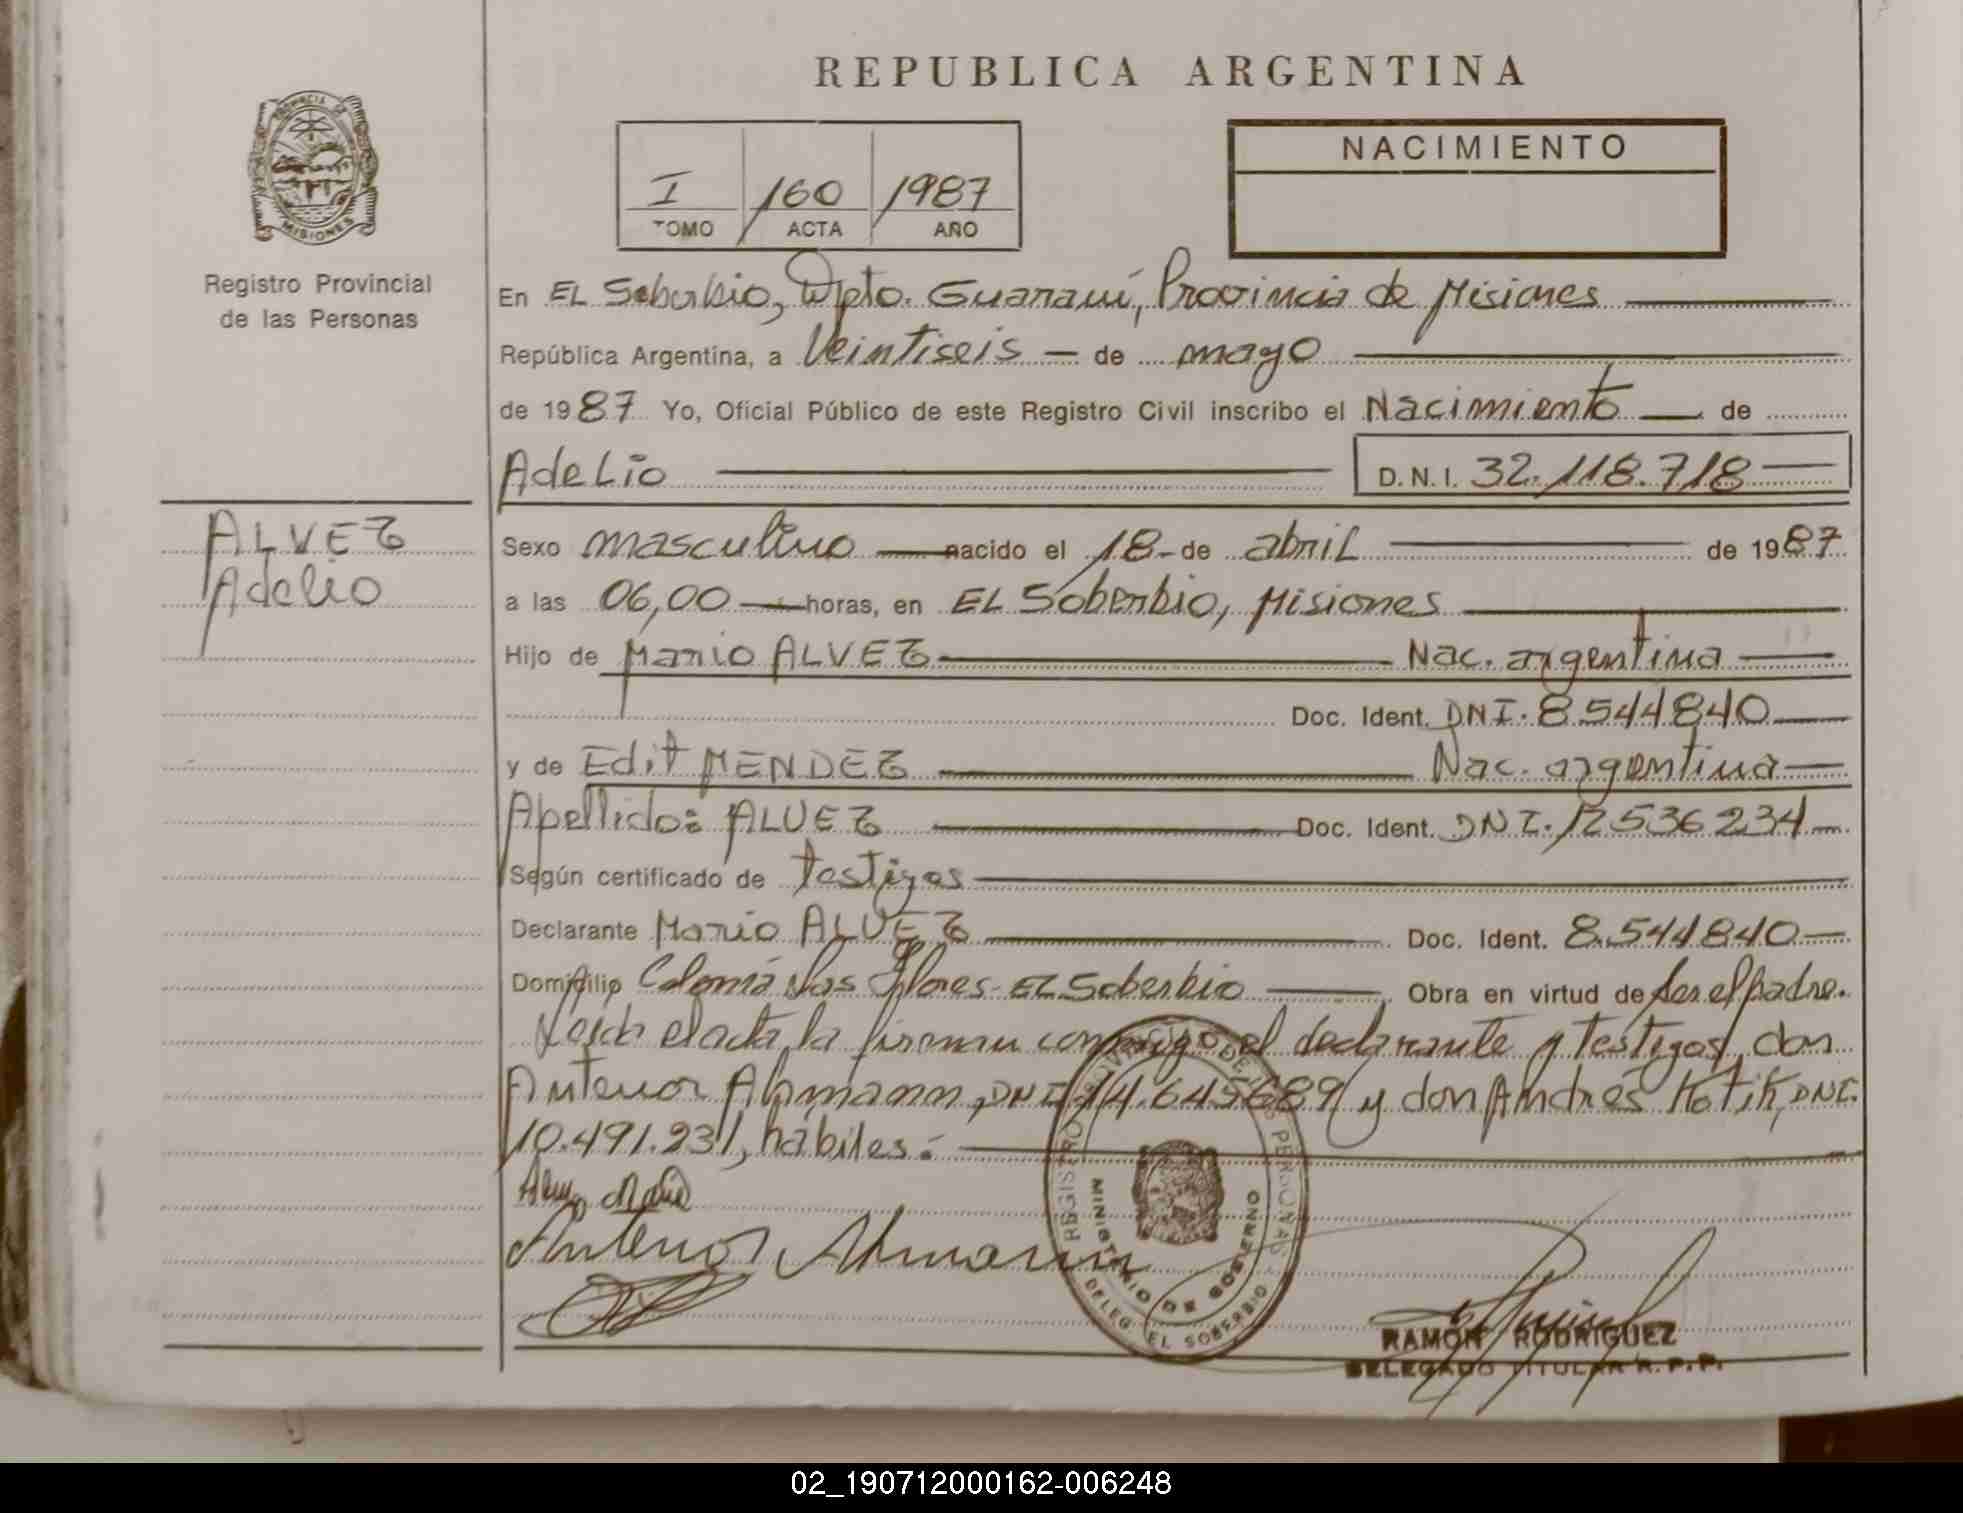 REPUBLICA ARGENTINA
PROVINCIA DE
MISIONES
Registro Provincial
de las Personas
I /160 /1987
TOMO ACTA AÑO
NACIMIENTO
En EL Soberbio, Dpto. Guaraní, Provincia de Misiones
República Argentina, a Veintiseis — de mayo
de 1987 Yo, Oficial Público de este Registro Civil inscribo el Nacimiento — de
Adelio D.N.I. 32.118.718
ALVEZ
Adelio
Sexo masculino nacido el 18 de abril de 1987
a las 06,00 horas, en EL Soberbio, Misiones
Hijo de Mario ALVEZ Nac. argentina
Doc. Ident. DNI. 8544840
y de Edit MENDEZ Nac. argentina
Apellido: ALVEZ Doc. Ident. DNI. 12536234
Según certificado de testigos
Declarante Mario ALVEZ Doc. Ident. 8.544840
Domicilio Colonia Las Flores - EL Soberbio Obra en virtud de ser el padre.
Leida el acta, la firman conmigo el declarante y testigos, don
Antenor Ahmann, DNI 14.645689 y don Andrés Kotik, DNI.
10.491.231, hábiles.-
Antenor Ahmann
REGISTRO PROVINCIAL DE LAS PERSONAS
MINISTERIO DE GOBIERNO
DELEG. EL SOBERBIO
RAMON RODRIGUEZ
DELEGADO TITULAR R.P.P.
02_190712000162-006248